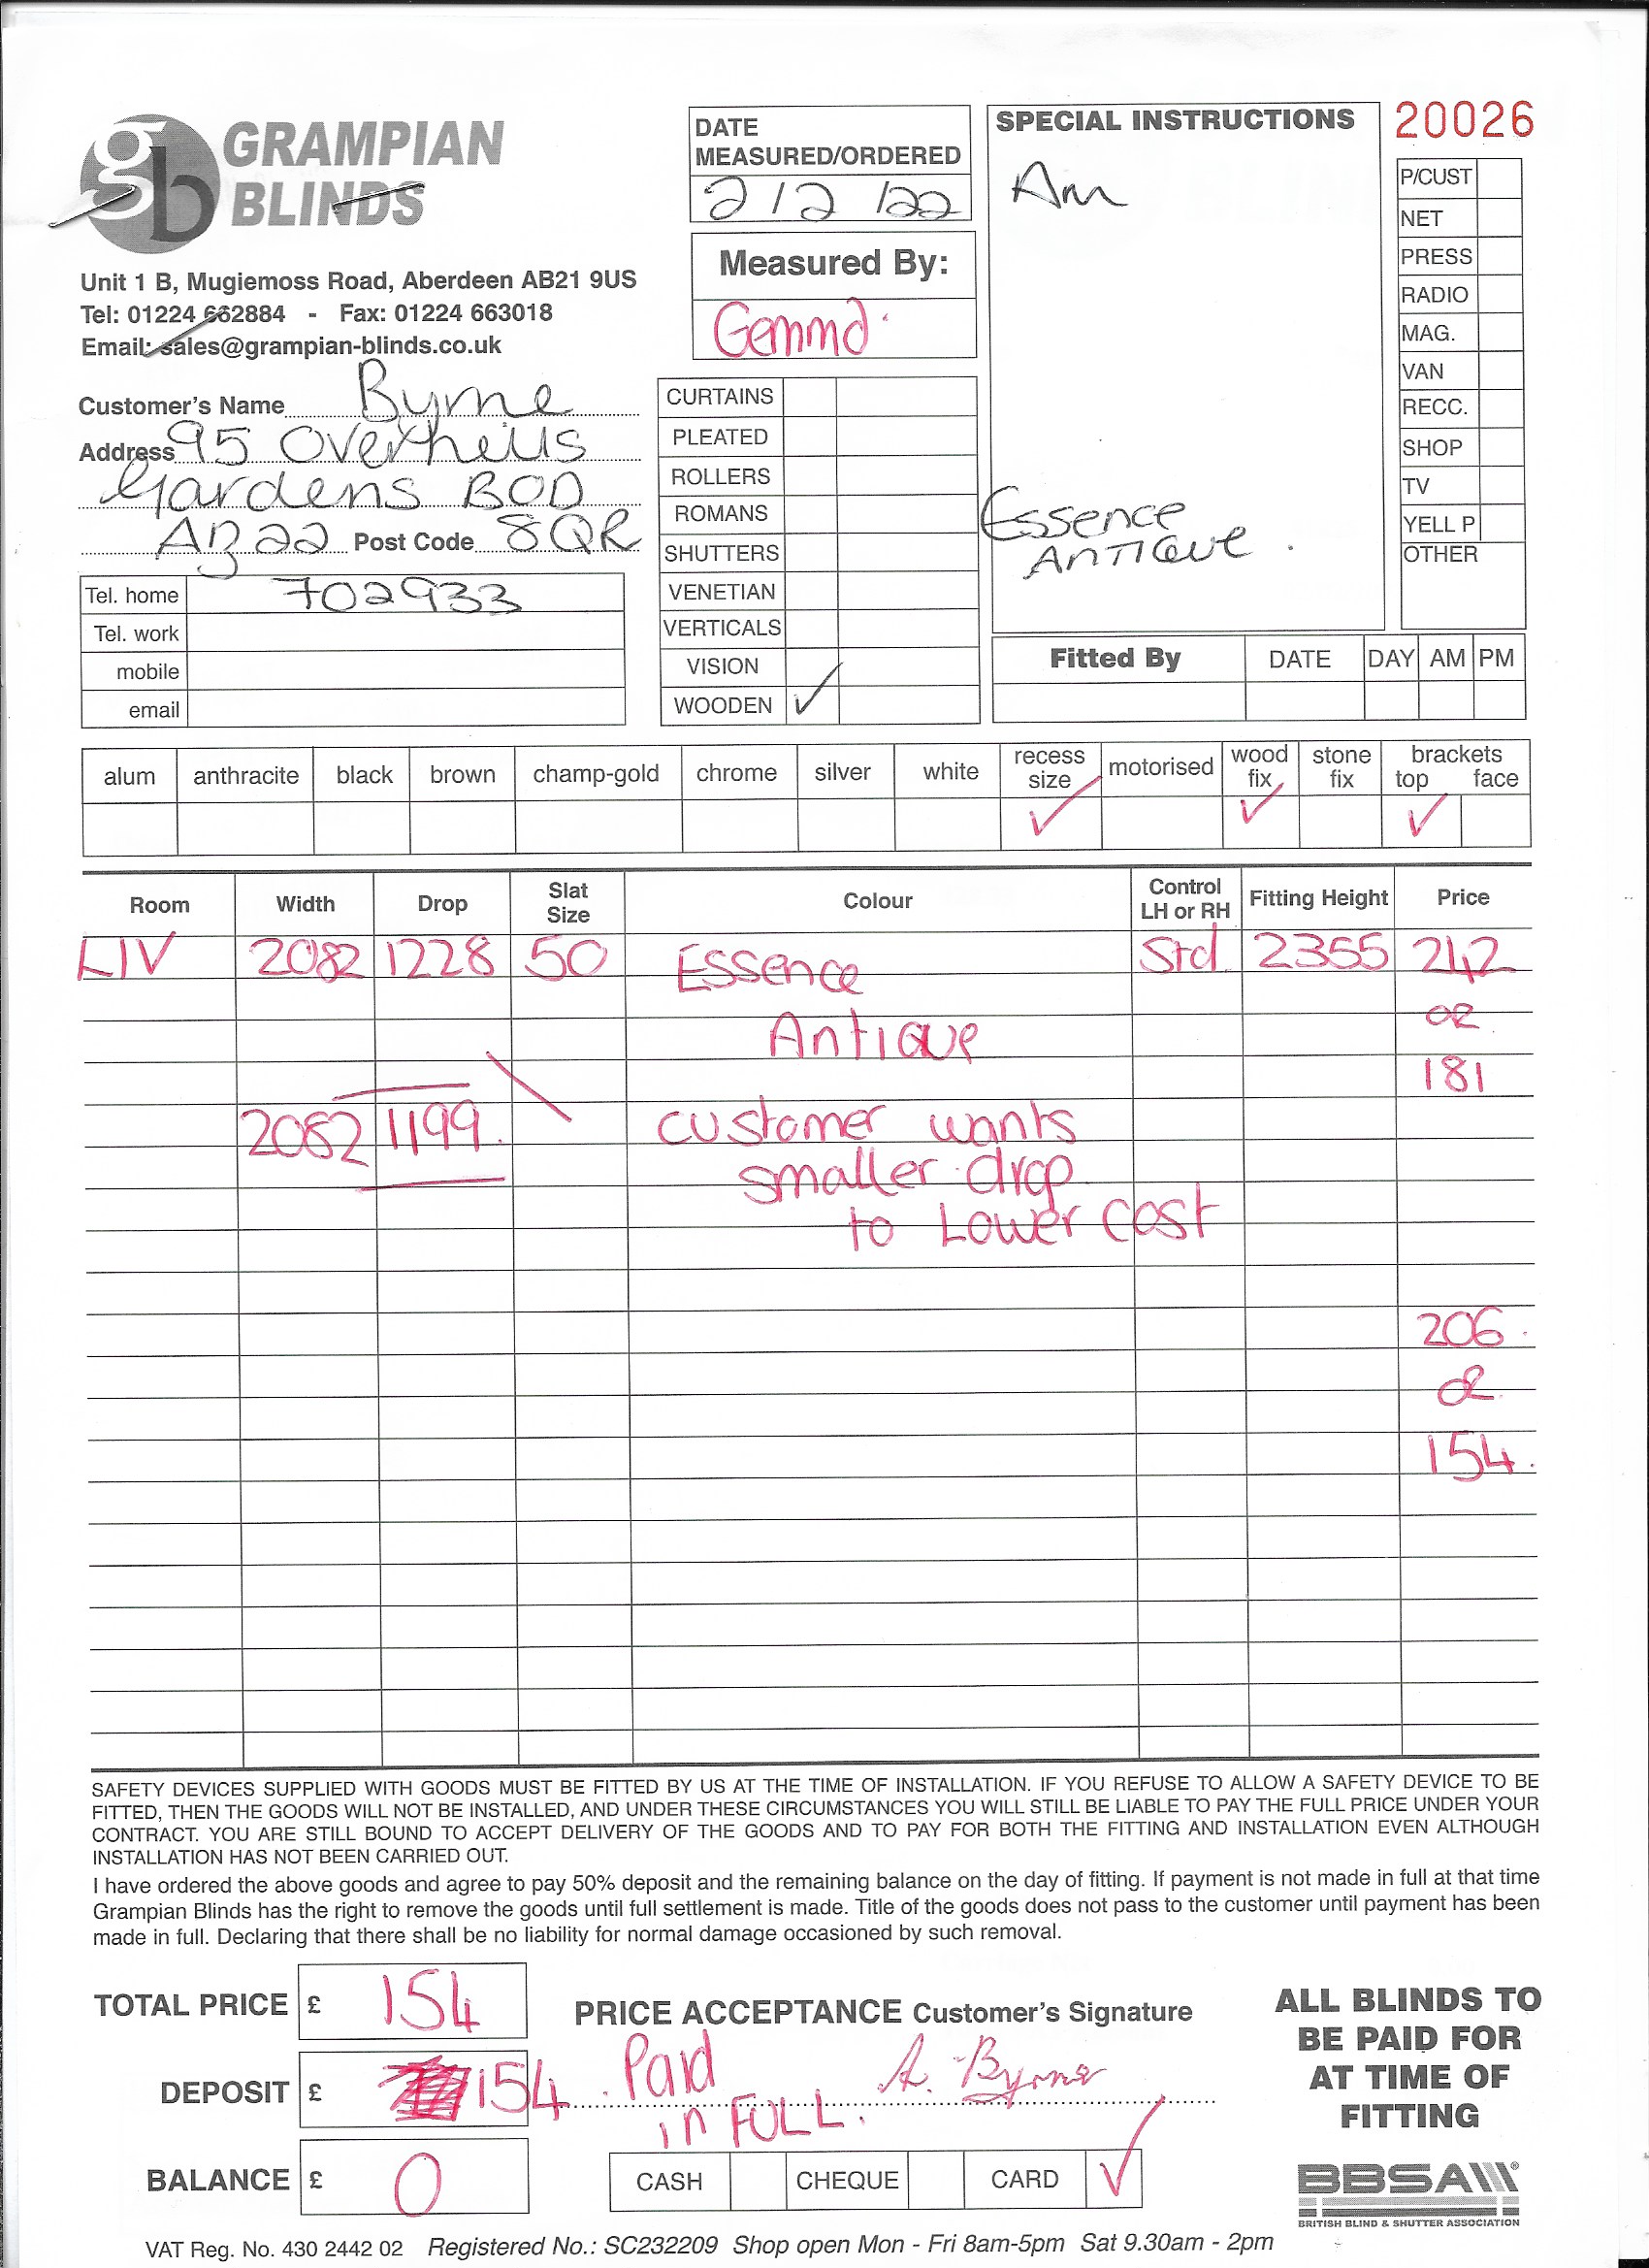 gb GRAMPIAN
BLINDS
Unit 1 B, Mugiemoss Road, Aberdeen AB21 9US
Tel: 01224 662884 - Fax: 01224 663018
Email: sales@grampian-blinds.co.uk
Customer's Name Byrne
Address 95 Overhills
Gardens BOD
AB22 Post Code 8QR
Tel. home 702933
Tel. work
mobile
email
DATE
MEASURED/ORDERED
2/2/22
Measured By:
Gemma
CURTAINS
PLEATED
ROLLERS
ROMANS
SHUTTERS
VENETIAN
VERTICALS
VISION
WOODEN ✓
SPECIAL INSTRUCTIONS
Am
Essence
Antique.
20026
P/CUST
NET
PRESS
RADIO
MAG.
VAN
RECC.
SHOP
TV
YELL P
OTHER
Fitted By DATE DAY AM PM
alum anthracite black brown champ-gold chrome silver white recess size ✓ motorised wood fix ✓ stone fix brackets top ✓ face
Room Width Drop Slat Size Colour Control LH or RH Fitting Height Price
LIV 2082 1228 50 Essence Std 2355 242
Antique or
181
2082 1199. customer wants
smaller drop
to Lower cost
206.
or
154.
SAFETY DEVICES SUPPLIED WITH GOODS MUST BE FITTED BY US AT THE TIME OF INSTALLATION. IF YOU REFUSE TO ALLOW A SAFETY DEVICE TO BE
FITTED, THEN THE GOODS WILL NOT BE INSTALLED, AND UNDER THESE CIRCUMSTANCES YOU WILL STILL BE LIABLE TO PAY THE FULL PRICE UNDER YOUR
CONTRACT. YOU ARE STILL BOUND TO ACCEPT DELIVERY OF THE GOODS AND TO PAY FOR BOTH THE FITTING AND INSTALLATION EVEN ALTHOUGH
INSTALLATION HAS NOT BEEN CARRIED OUT.
I have ordered the above goods and agree to pay 50% deposit and the remaining balance on the day of fitting. If payment is not made in full at that time
Grampian Blinds has the right to remove the goods until full settlement is made. Title of the goods does not pass to the customer until payment has been
made in full. Declaring that there shall be no liability for normal damage occasioned by such removal.
TOTAL PRICE £ 154
DEPOSIT £ 154
BALANCE £ 0
PRICE ACCEPTANCE Customer's Signature
Paid A. Byrne
in FULL.
CASH CHEQUE CARD ✓
ALL BLINDS TO
BE PAID FOR
AT TIME OF
FITTING
BBSA®
BRITISH BLIND & SHUTTER ASSOCIATION
VAT Reg. No. 430 2442 02 Registered No.: SC232209 Shop open Mon - Fri 8am-5pm Sat 9.30am - 2pm